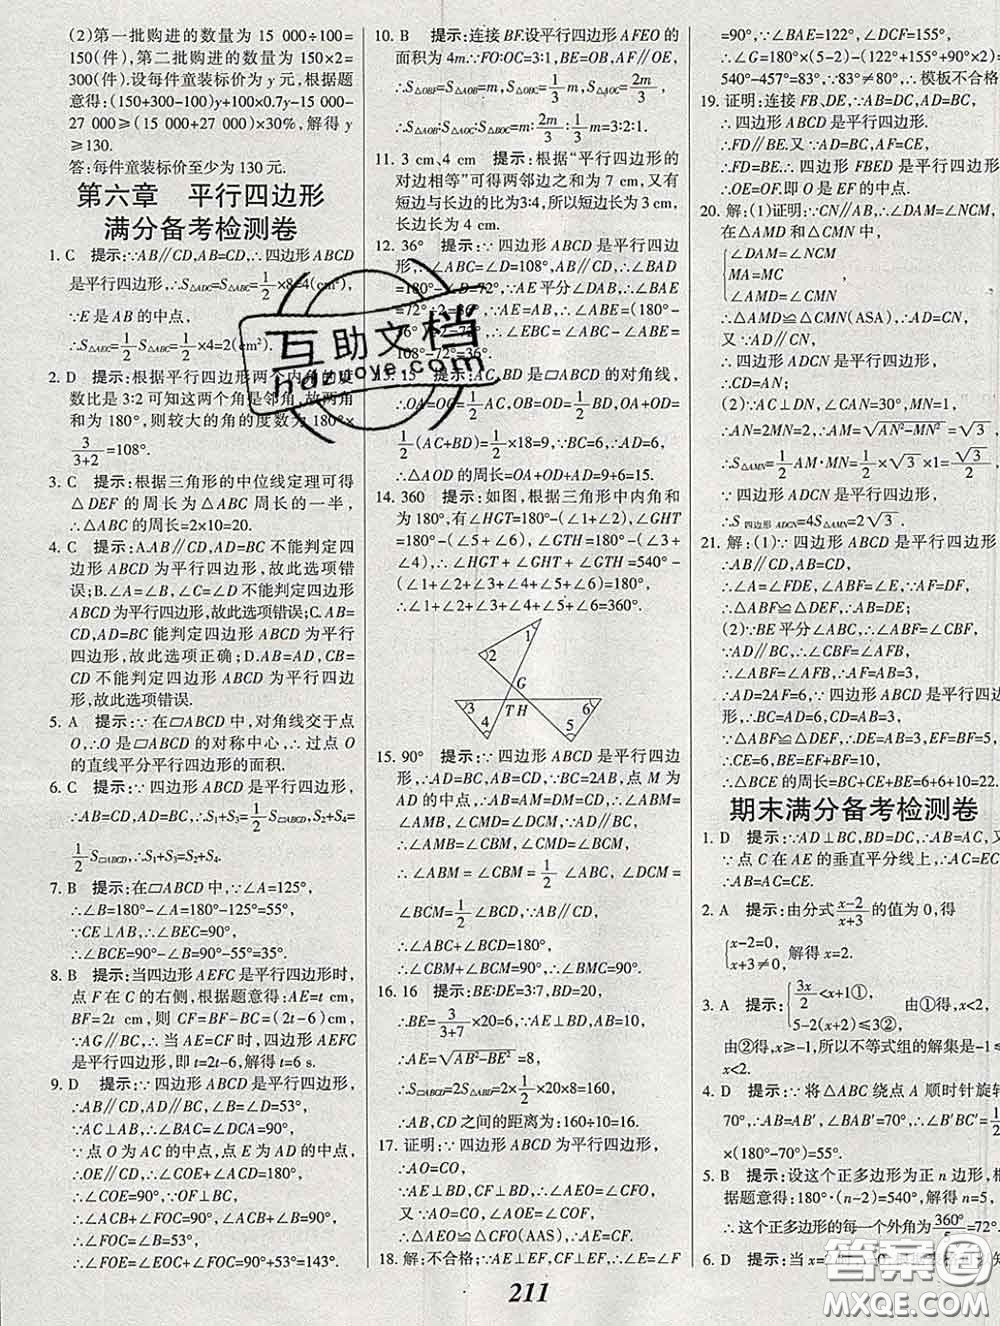 (2)第一批购进的数量为 15 000÷100=
150(件),第二批购进的数量为 150×2=
300(件).设每件童装标价为 y 元,根据题
意得:(150+300-100)y+100×0.7y-15 000-
27 000≥(15 000+27 000)×30%,解得 y
≥130.
答:每件童装标价至少为 130 元.
第六章 平行四边形
满分备考检测卷
1. C 提示:∵AB∥CD,AB=CD,∴四边形 ABCD
是平行四边形,∴S△ADC=S△ABC=1/2×8=4(cm²),
∵E 是 AB 的中点,
∴S△AEC=1/2 S△ABC=1/2×4=2(cm²).
2. D 提示:根据平行四边形两个内角的度
数比是 3∶2 可知这两个角是邻角,故两角
和为 180°,则较大的角的度数为 180°×
3/(3+2)=108°.
3. C 提示:根据三角形的中位线定理可得
△DEF 的周长为△ABC 周长的一半,
∴△ABC 的周长=2×10=20.
4. C 提示:A.AB∥CD,AD=BC 不能判定四
边形 ABCD 为平行四边形,故此选项错
误;B.∠A=∠B,∠C=∠D 不能判定四边形
ABCD 为平行四边形,故此选项错误;C.AB=
CD,AD=BC 能判定四边形 ABCD 为平行
四边形,故此选项正确;D.AB=AD,CB=
CD 不能判定四边形 ABCD 为平行四边
形,故此选项错误.
5. A 提示:∵在▱ABCD 中,对角线交于点
O,∴O 是▱ABCD 的对称中心,∴过点 O
的直线平分平行四边形的面积.
6. C 提示:∵四边形 ABCD 是平行四边形,
∴AB=CD,AD=BC,∴S1+S3=1/2 S▱ABCD,S2+S4=
1/2 S▱ABCD,∴S1+S3=S2+S4.
7. B 提示:在▱ABCD 中,∵∠A=125°,
∴∠B=180°-∠A=180°-125°=55°,
∵CE⊥AB,∴∠BEC=90°,
∴∠BCE=90°-∠B=90°-55°=35°.
8. B 提示:当四边形 AEFC 是平行四边形时,
点 F 在 C 的右侧,根据题意得:AE=t cm,
BF=2t cm,则 CF=BF-BC=(2t-6)cm,
∵AG∥BC,∴当 AE=CF 时,四边形 AEFC
是平行四边形,即 t=2t-6,解得 t=6 s.
9. D 提示:∵四边形 ABCD 是平行四边形,
∴AB∥CD,AD∥BC,∠B=∠D=53°,
∵AC⊥AB,∴∠DCA=90°,
∵点 O 为 AC 的中点,点 E 为 AD 的中点,
∴OE∥CD,∴∠COE=90°,
∵∠COE=90°,∵OF⊥BC,
∴∠ACB+∠FOC=90°,∠ACB+∠B=90°,
∴∠FOC=∠B=53°,
∴∠FOE=∠FOC+∠COE=53°+90°=143°.
10. B 提示:连接 BF.设平行四边形 AFEO 的
面积为 4m.∵FO∶OC=3∶1,BE=OB,AF∥OE,
∴S△OBF=S△AOB=m,S△OBC=1/3 m,S△AOC=2m/3,
∴S△AOB∶S△AOC∶S△BOC=m∶2m/3∶1/3 m=3∶2∶1.
11. 3 cm、4 cm 提示:根据“平行四边形的
对边相等”可得两邻边之和为 7 cm,又因
短边与长边的比为3∶4,所以短边为 3 cm,
长边为 4 cm.
12. 36° 提示:∵四边形 ABCD 是平行四边
形,∴∠ABC=∠D=108°,∴∠BAD
=180°-∠D=72°,∵AE 平分∠DAB,∴∠BAE
=72°÷2=36°,∵AE=AB,∴∠ABE=(180°-
36°)÷2=72°,∴∠EBC=∠ABC-∠ABE=
108°-72°=36°.
13. 15 提示:AC,BD 是▱ABCD 的对角线,
∴OA=OC=1/2 AC,OB=OD=1/2 BD,OA+OD=
1/2(AC+BD)=1/2×18=9,∵BC=6,AD=6,
∴△AOD 的周长=OA+OD+AD=9+6=15.
14. 360 提示:如图,根据三角形中内角和
为180°,有∠HGT=180°-(∠1+∠2),∠GHT
=180°-(∠5+∠6),∠GTH=180°-(∠3+
∠4),∴∠HGT+∠GHT+∠GTH=180°,
∴∠1+∠2+∠3+∠4+∠5+∠6=360°.
1
2
G
3 T H 6
4 5
15. 90° 提示:∵四边形 ABCD 是平行四边
形,∴AB=CD,AD=BC,∵BC=2AB,点 M 为
AD 的中点,∴AB=AM=DM=CD,∴∠ABM=
∠AMB=∠CBM,∠DCM=∠DMC=∠BCM,
∴∠ABM=∠CBM=1/2∠ABC,∠DCM=
∠BCM=1/2∠BCD,∵AB∥CD,
∴∠ABC+∠BCD=180°,
∴∠CBM+∠BCM=90°,∴∠BMC=90°.
16. 16 提示:BE∶DE=3∶7,BD=20,
∴BE=3/(3+7)×20=6,∵AE⊥BD,AB=10,
∴AE=√(AB²-BE²)=8,
∴S▱ABCD=2S△ABD=2×1/2×20×8=160,
∴AB,CD 之间的距离为:160÷10=16.
17. 证明:∵四边形 ABCD 为平行四边形,
∴AO=CO,
∵AE⊥BD,CF⊥BD,∴∠AEO=∠CFO,
又∵AO=CO,∠AOE=∠COF,
∴△AEO≌△CFO(AAS),∴OE=OF.
18. 解:不合格;∵AE⊥EF,CF⊥EF,∴∠E=∠F
=90°,∵∠BAE=122°,∠DCF=155°,
∴∠G=180°×(5-2)-(122°+155°+90°×2)=
540°-457°=83°,∵83°≠80°,∴模板不合格.
19. 证明:连接 FB、DE,∵AB=DC,AD=BC,
∴四边形 ABCD 是平行四边形.
∴FD∥BE.又∵AD=BC,DF=BE,
∴FD∥BE.∴四边形 FBED 是平行四边形,
∴OE=OF.即 O 是 EF 的中点.
20. 解:(1)证明:∵CN∥AB,∴∠DAM=∠NCM,
在△AMD 和△CMN 中,
∠DAM=∠NCM
MA=MC
∠AMD=∠CMN
∴△AMD≌△CMN(ASA),∴AD=CN,
又∵AD∥CN,
∴四边形 ADCN 是平行四边形,
∴CD=AN;
(2)∵AC⊥DN,∠CAN=30°,MN=1,
∴AN=2MN=2,∴AM=√(AN²-MN²)=√3,
∴S△AMN=1/2 AM·MN=1/2×√3×1=√3/2,
∵四边形 ADCN 是平行四边形,
∴S四边形ADCN=4S△AMN=2√3.
21. 解:(1)∵四边形 ABCD 是平行四边形,
∴∠A=∠FDE,∠ABF=∠E,
∴△ABF≌△DEF,∴AB=DE;
(2)∵BE 平分∠ABC,∴∠ABF=∠CBF,
∵AD∥BC,∴∠CBF=∠AFB,
∴∠ABF=∠AFB,∴AF=AB=3,
∴AD=2AF=6,∵四边形 ABCD 是平行四边
∴BC=AD=6,CD=AB=3,
∵△ABF≌△DEF,∴DE=AB=3,EF=BF=5,
∴CE=6,BE=EF+BF=10,
∴△BCE 的周长=BC+CE+BE=6+6+10=22.
期末满分备考检测卷
1. D 提示:∵AD⊥BC,BD=DC,∴AB=AC,又
∵点 C 在 AE 的垂直平分线上,∴AC=EC
AB=AC=CE.
2. A 提示:由分式 (x-2)/(x+3) 的值为 0,得
x-2=0,
x+3≠0, 解得 x=2.
3. A 提示:
3x/2<x+1①,
5-2(x+2)≤3②, 由①得,x<2,
由②得,x≥-1,所以不等式组的解集是-1≤
x<2.
4. D 提示:∵将△ABC 绕点 A 顺时针旋转
70°,∴AB=AB′,∠BAB′=70°,∴∠B′BC′=1/2
×(180°-70°)=55°.
5. B 提示:设这个正多边形为正 n 边形,根
据题意得:180°·(n-2)=540°,解得 n=5,
∴这个正多边形的每一个外角为360°/5=72°.
6. D 提示:当 x=
211
互助文档
hdzuoye.com
答案圈
MXQE.COM